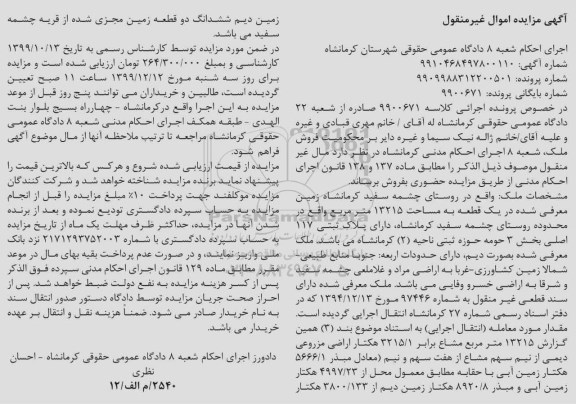 آگهی مزایده اموال غیرمنقول
اجرای احکام شعبه ۸ دادگاه عمومی حقوقی شهرستان کرمانشاه
شماره آگهی: ۹۹۱۰۴۶۸۴۹۷۸۰۰۱۱۰
شماره پرونده: ۹۹۰۹۹۸۸۳۱۲۲۰۰۵۰۱
شماره بایگانی پرونده: ۹۹۰۰۶۷۱
در خصوص پرونده اجرائی کلاسه ۹۹۰۰۶۷۱ صادره از شعبه ۲۲
دادگاه عمومی حقوقی کرمانشاه له آقای / خانم مهری قبادی و غیره
و علیه آقای/خانم ژاله نیک سیما و غیره دایر بر محکومیت فروش
ملک، شعبه ۸ اجرای احکام مدنی کرمانشاه در نظر دارد مال غیر
منقول موصوف ذیل الذکر را مطابق ماده ۱۳۷ و ۱۳۸ قانون اجرای
احکام مدنی از طریق مزایده حضوری بفروش برساند.
مشخصات ملک: واقع در روستای چشمه سفید کرمانشاه زمین
معرفی شده در یک قطعه به مساحت ۱۳۲۱۵ متر مربع واقع در
محدوده روستای چشمه سفید کرمانشاه، دارای پلاک ثبتی ۱۱۷
اصلی بخش ۳ حومه حوزه ثبتی ناحیه (۲) کرمانشاه می باشد. ملک
معرفی شده بصورت دیم، دارای حدودات اربعه: جنوبا منابع طبیعی -
شمالا زمین کشاورزی-غربا به اراضی مراد و غلامعلی چشمه سفید
و شرقا به اراضی خسرو وفایی می باشد. ملک معرفی شده دارای
سند قطعی غیر منقول به شماره ۹۷۴۴۶ مورخ ۱۳۹۴/۱۲/۱۳ که در
دفتر اسناد رسمی شماره ۲۷ کرمانشاه انتقال اجرایی گردیده است.
مقدار مورد معامله (انتقال اجرایی) به استناد موضوع بند (۳) همین
گزارش ۱۳۲۱۵ متر مربع مشاع برابر ۳۲۱۵/۱ هکتار اراضی مزروعی
دیمی از نیم سهم مشاع از هفت سهم و نیم (معادل مبذر ۵۶۶۶/۱
هکتار زمین آبی با حقابه مطابق معمول محل از ۴۹۹۷/۲۳ هکتار
زمین آبی و مبذر ۸۹۲۰/۸ هکتار زمین دیم از ۳۸۰۰/۱۳۳ هکتار
زمین دیم ششدانگ دو قطعه زمین مجزی شده از قریه چشمه
سفید می باشد.
در ضمن مورد مزایده توسط کارشناس رسمی به تاریخ ۱۳۹۹/۱۰/۱۳
کارشناسی و بمبلغ ۲۶۴/۳۰۰/۰۰۰ تومان ارزیابی شده است و مزایده
برای روز سه شنبه مورخ ۱۳۹۹/۱۲/۱۲ ساعت ۱۱ صبح تعیین
گردیده است، طالبین و خریداران می توانند پنج روز قبل از موعد
مزایده به این اجرا واقع در کرمانشاه - چهارراه بسیج بلوار بنت
الهدی - طبقه همکف اجرای احکام مدنی شعبه ۸ دادگاه عمومی
حقوقی کرمانشاه مراجعه تا ترتیب ملاحظه آنها از مال موضوع آگهی
فراهم شود.
مزایده از قیمت ارزیابی شده شروع و هرکس که بالاترین قیمت را
پیشنهاد نماید برنده مزایده شناخته خواهد شد و شرکت کنندگان
مزایده موکلفند جهت پرداخت ۱۰٪ مبلغ مزایده را قبل از انجام
مزایده به حساب سپرده دادگستری تودیع نموده و بعد از برنده
شدن آنها در مزایده، حداکثر ظرف مهلت یک ماه از تاریخ مزایده
به حساب سپرده دادگستری با شماره ۲۱۷۱۲۹۳۷۵۲۰۰۳ نزد بانک
ملی واریز نمایند، و در صورت عدم پرداخت بقیه بهای مال در موعد
مقرر مطابق ماده ۱۲۹ قانون اجرای احکام مدنی سپرده فوق الذکر
پس از کسر هزینه مزایده به نفع دولت ضبط خواهد شد. پس از
احراز صحت جریان مزایده توسط دادگاه دستور صدور انتقال سند
به نام خریدار صادر می شود. ضمناً هزینه نقل و انتقال بر عهده
خریدار می باشد.
دادورز اجرای احکام شعبه ۸ دادگاه عمومی حقوقی کرمانشاه - احسان
نظری
۲۵۴۰/م الف/۱۲